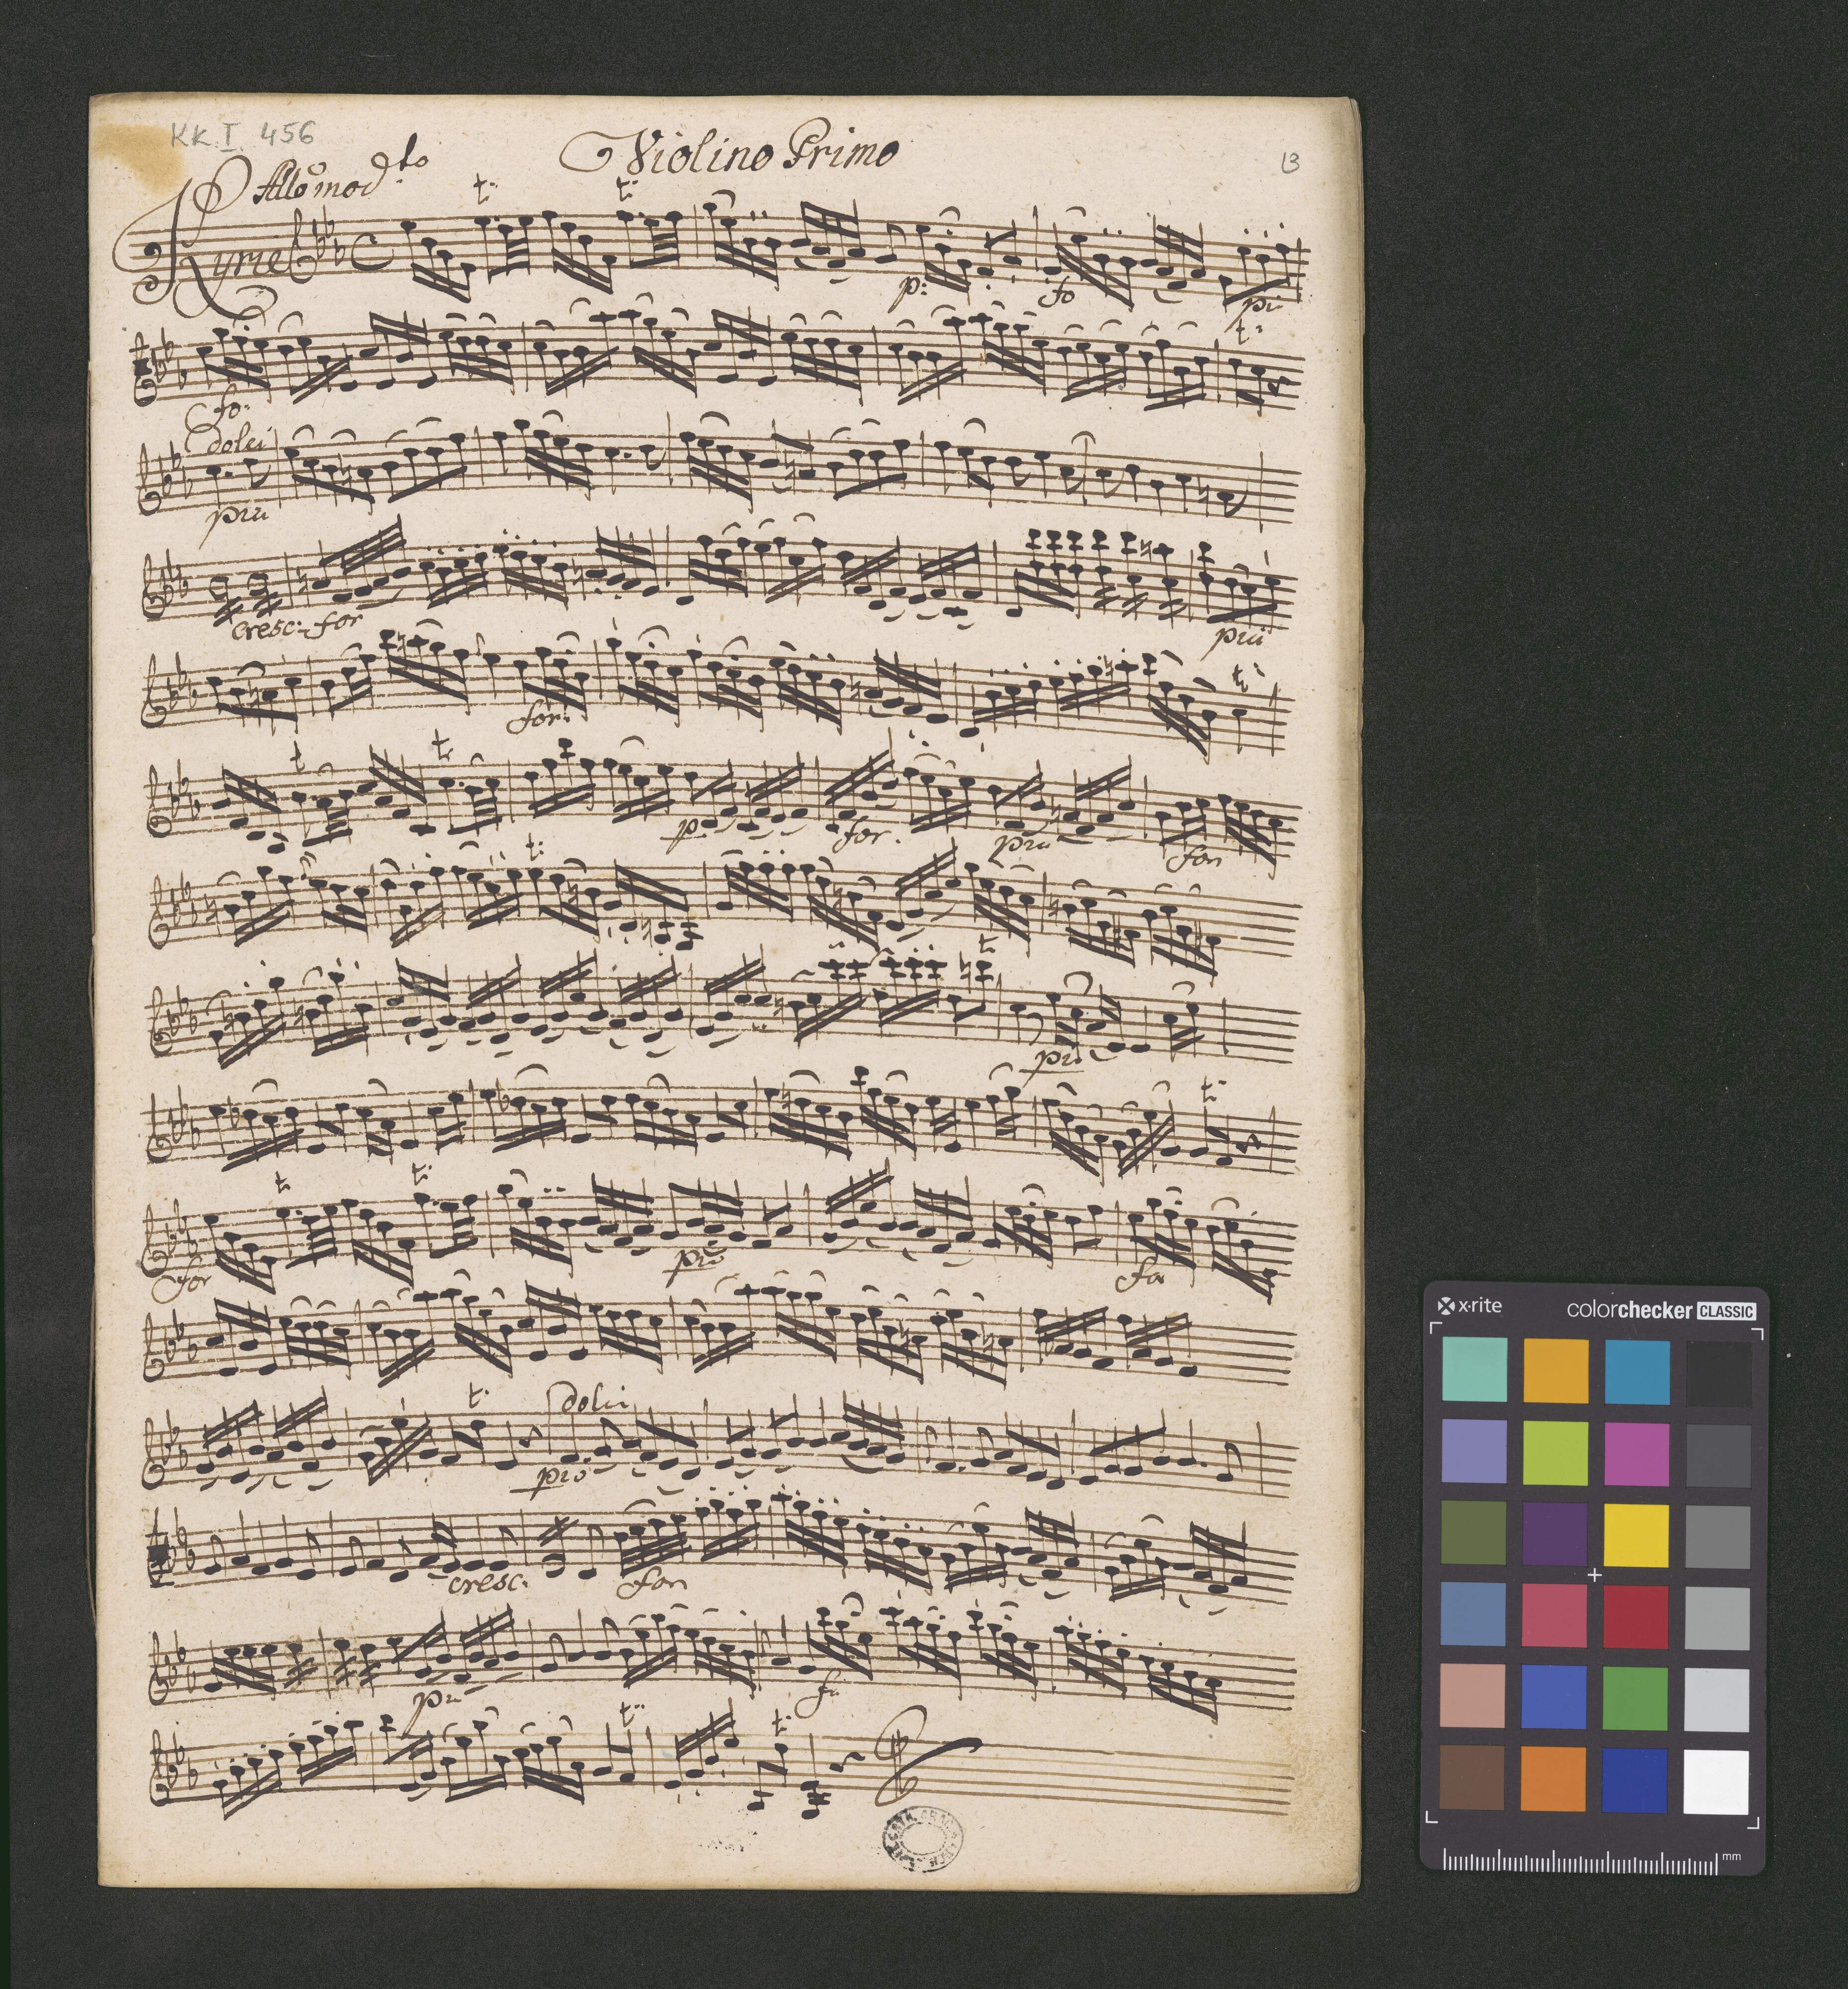 KK. I. 456
Violino Primo
13
Allo modto
t: t:
Kyrie
p: fo pi:
t:
fo:
dolci
pia
cresc: for
pia
for: t:
t t.
p. for. pia for
t:
t
pia
t:
t t:
for pia for
t. dolci
pia
cresc. for
pia fo
t: t:
x·rite
colorchecker CLASSIC
mm